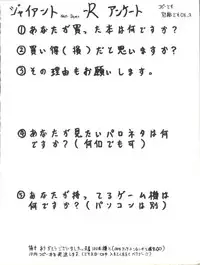 ジャイアント -R アンケート
コピーでも
① あなたが買った本は何ですか?
② 買い得(損)だと思いますか?
③ その理由もお願いします。
④ あなたが見たいパロネタは何
ですか?(何個でも可)
⑤ あなたが持ってるゲーム機は
何ですか?(パソコンは別)